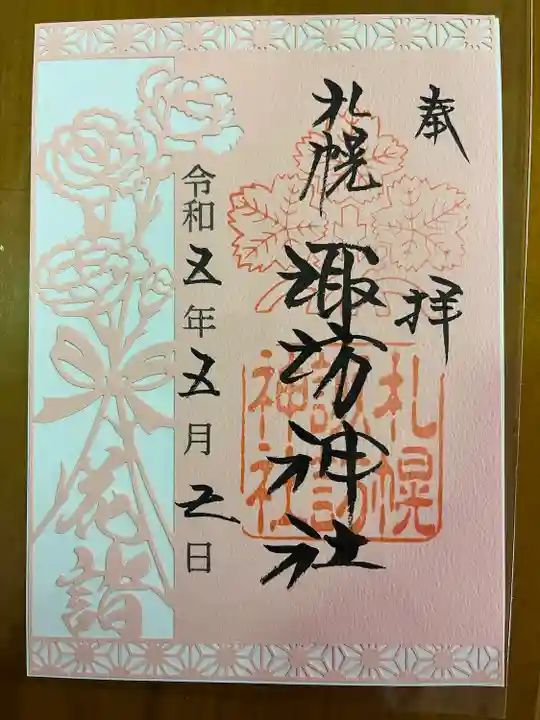 奉拝
札幌
諏訪神社
札幌
諏訪
神社
令和五年五月二日
花詣